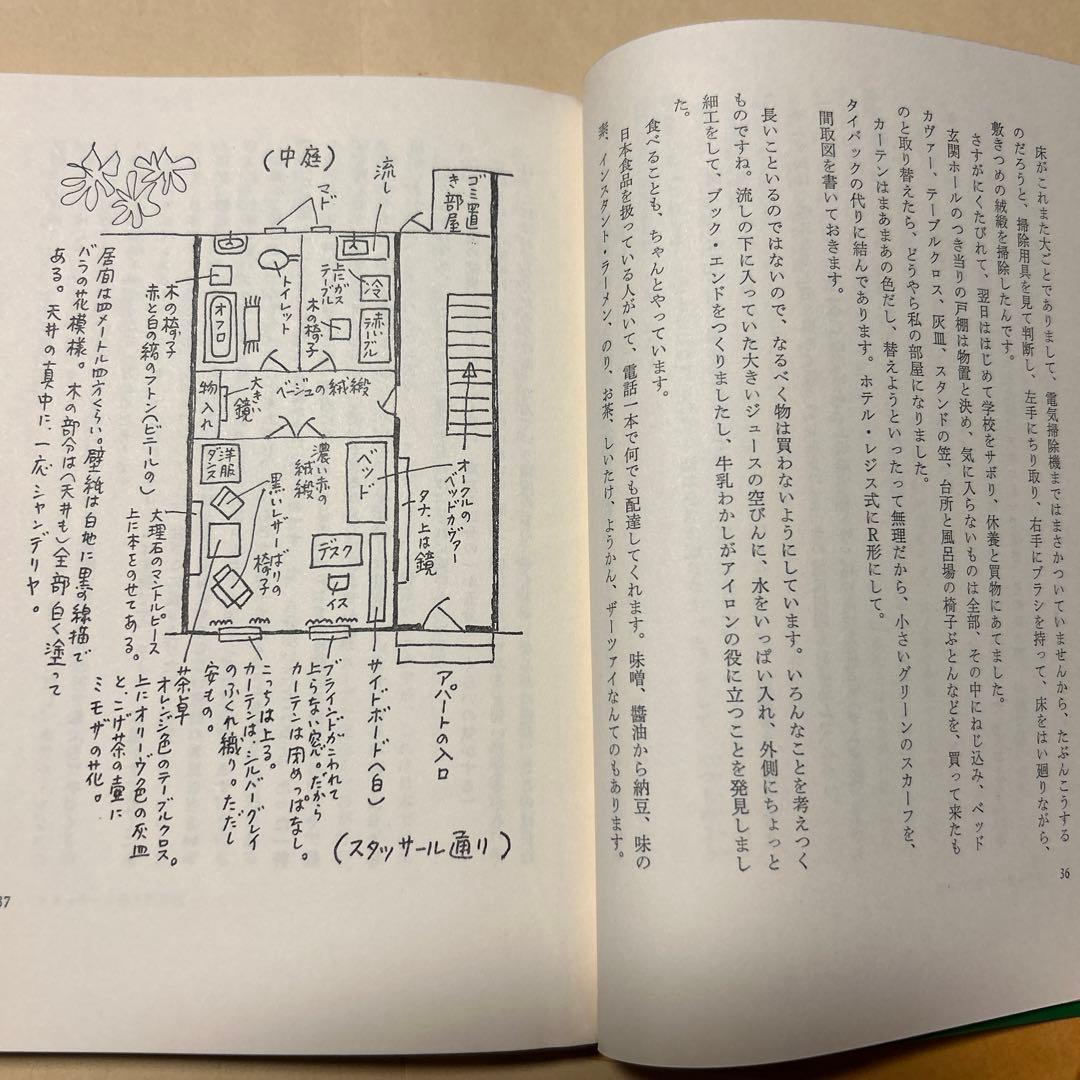 床がこれまた大ごとでありまして、電気掃除機まではまさかついていませんから、たぶんこうする
のだろうと、掃除用具を見て判断し、左手にちり取り、右手にブラシを持って、床をはい廻りながら、
敷きつめの絨緞を掃除したんです。
さすがにくたびれて、翌日ははじめて学校をサボり、休養と買物にあてました。
玄関ホールのつき当りの戸棚は物置と決め、気に入らないものは全部、その中にねじ込み、ベッド
カヴァー、テーブルクロス、灰皿、スタンドの笠、台所と風呂場の椅子ぶとんなどを、買って来たも
のと取り替えたら、どうやら私の部屋になりました。
カーテンはまあまあの色だし、替えようといったって無理だから、小さいグリーンのスカーフを、
タイバックの代りに結んであります。ホテル・レジス式にR形にして。
間取図を書いておきます。
長いこといるのではないので、なるべく物は買わないようにしています。いろんなことを考えつく
ものですね。流しの下に入っていた大きいジュースの空びんに、水をいっぱい入れ、外側にちょっと
細工をして、ブック・エンドをつくりましたし、牛乳わかしがアイロンの役に立つことを発見しまし
た。
食べることも、ちゃんとやっています。
日本食品を扱っている人がいて、電話一本で何でも配達してくれます。味噌、醬油から納豆、味の
素、インスタント・ラーメン、のり、お茶、しいたけ、ようかん、ザーツァイなんてのもあります。
36
(中庭)
マド
流し
ゴミ置
き部屋
上にガス
テーブル
冷
赤い
テーブル
木の椅子
トイレット
オフロ
木の椅子
赤と白の縞のフトン(ビニールの)
物入れ
大きい
鏡
ベージュの絨緞
洋服
ダンス
濃い赤の
絨緞
ベッド
オークルの
ベッドカヴァー
タナ、上は鏡
黒いレザーばりの
椅子
デスク
イス
大理石のマントルピース
上に本をのせてある。
居間は四メートル四方くらい。壁紙は白地に黒の線描で
バラの花模様。木の部分は(天井も)全部白く塗って
ある。天井の真中に、一応シャンデリヤ。
アパートの入口
サイドボード(白)
ブラインドがこわれて
上らない窓。だから
カーテンは閉めっぱなし。
こっちは上る。
カーテンは、シルバーグレイ
のふくれ織り。ただし
安もの。
茶卓
オレンジ色のテーブルクロス。
上にオリーヴ色の灰皿
と、こげ茶の壷に
ミモザの花。
(スタッサール通り)
37